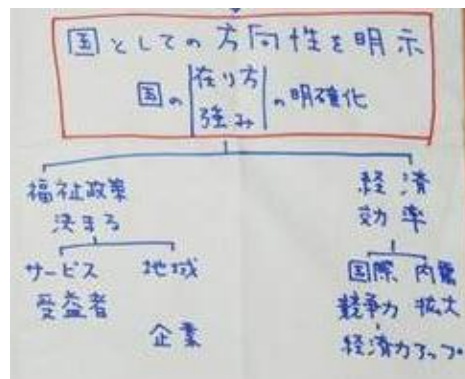 国としての方向性を明示
国の 在り方 強み の明確化
福祉政策
決まる
サービス
受益者
地域
企業
経済
効率
国際 内需
競争力 拡大
経済力アップ